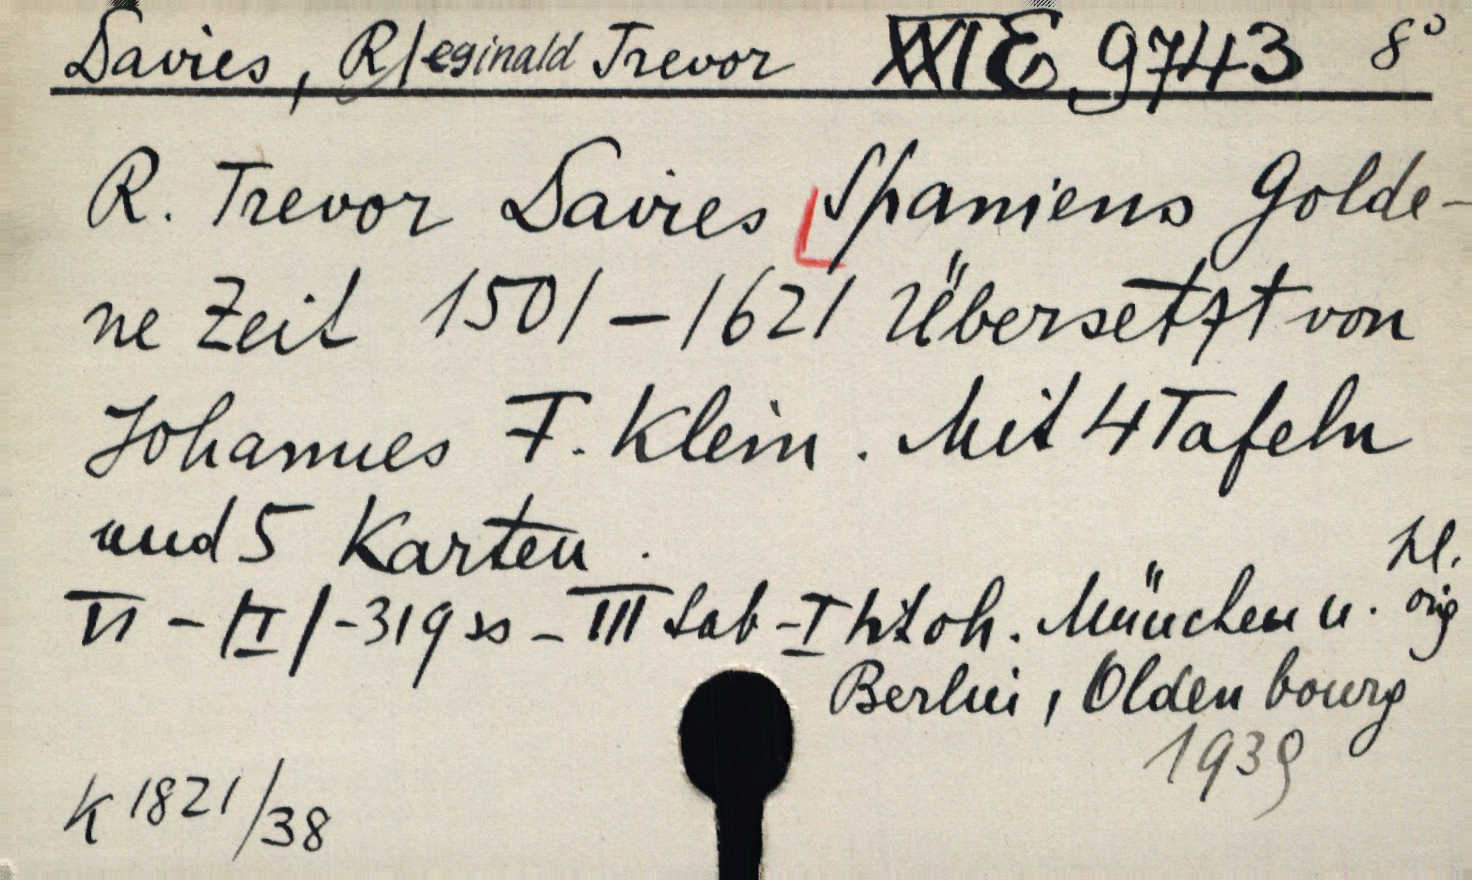 Davies, R/eginald Trevor XXI E 9743 8°
R. Trevor Davies Spaniens Golde-
ne Zeit 1501–1621 Übersetzt von
Johannes F. Klein. Mit 4 Tafeln
und 5 Karten.
VI – /II/ - 319 ss – III tab – I ktoh. München u.
Berlin, Oldenbourg
1939
K 1821/38